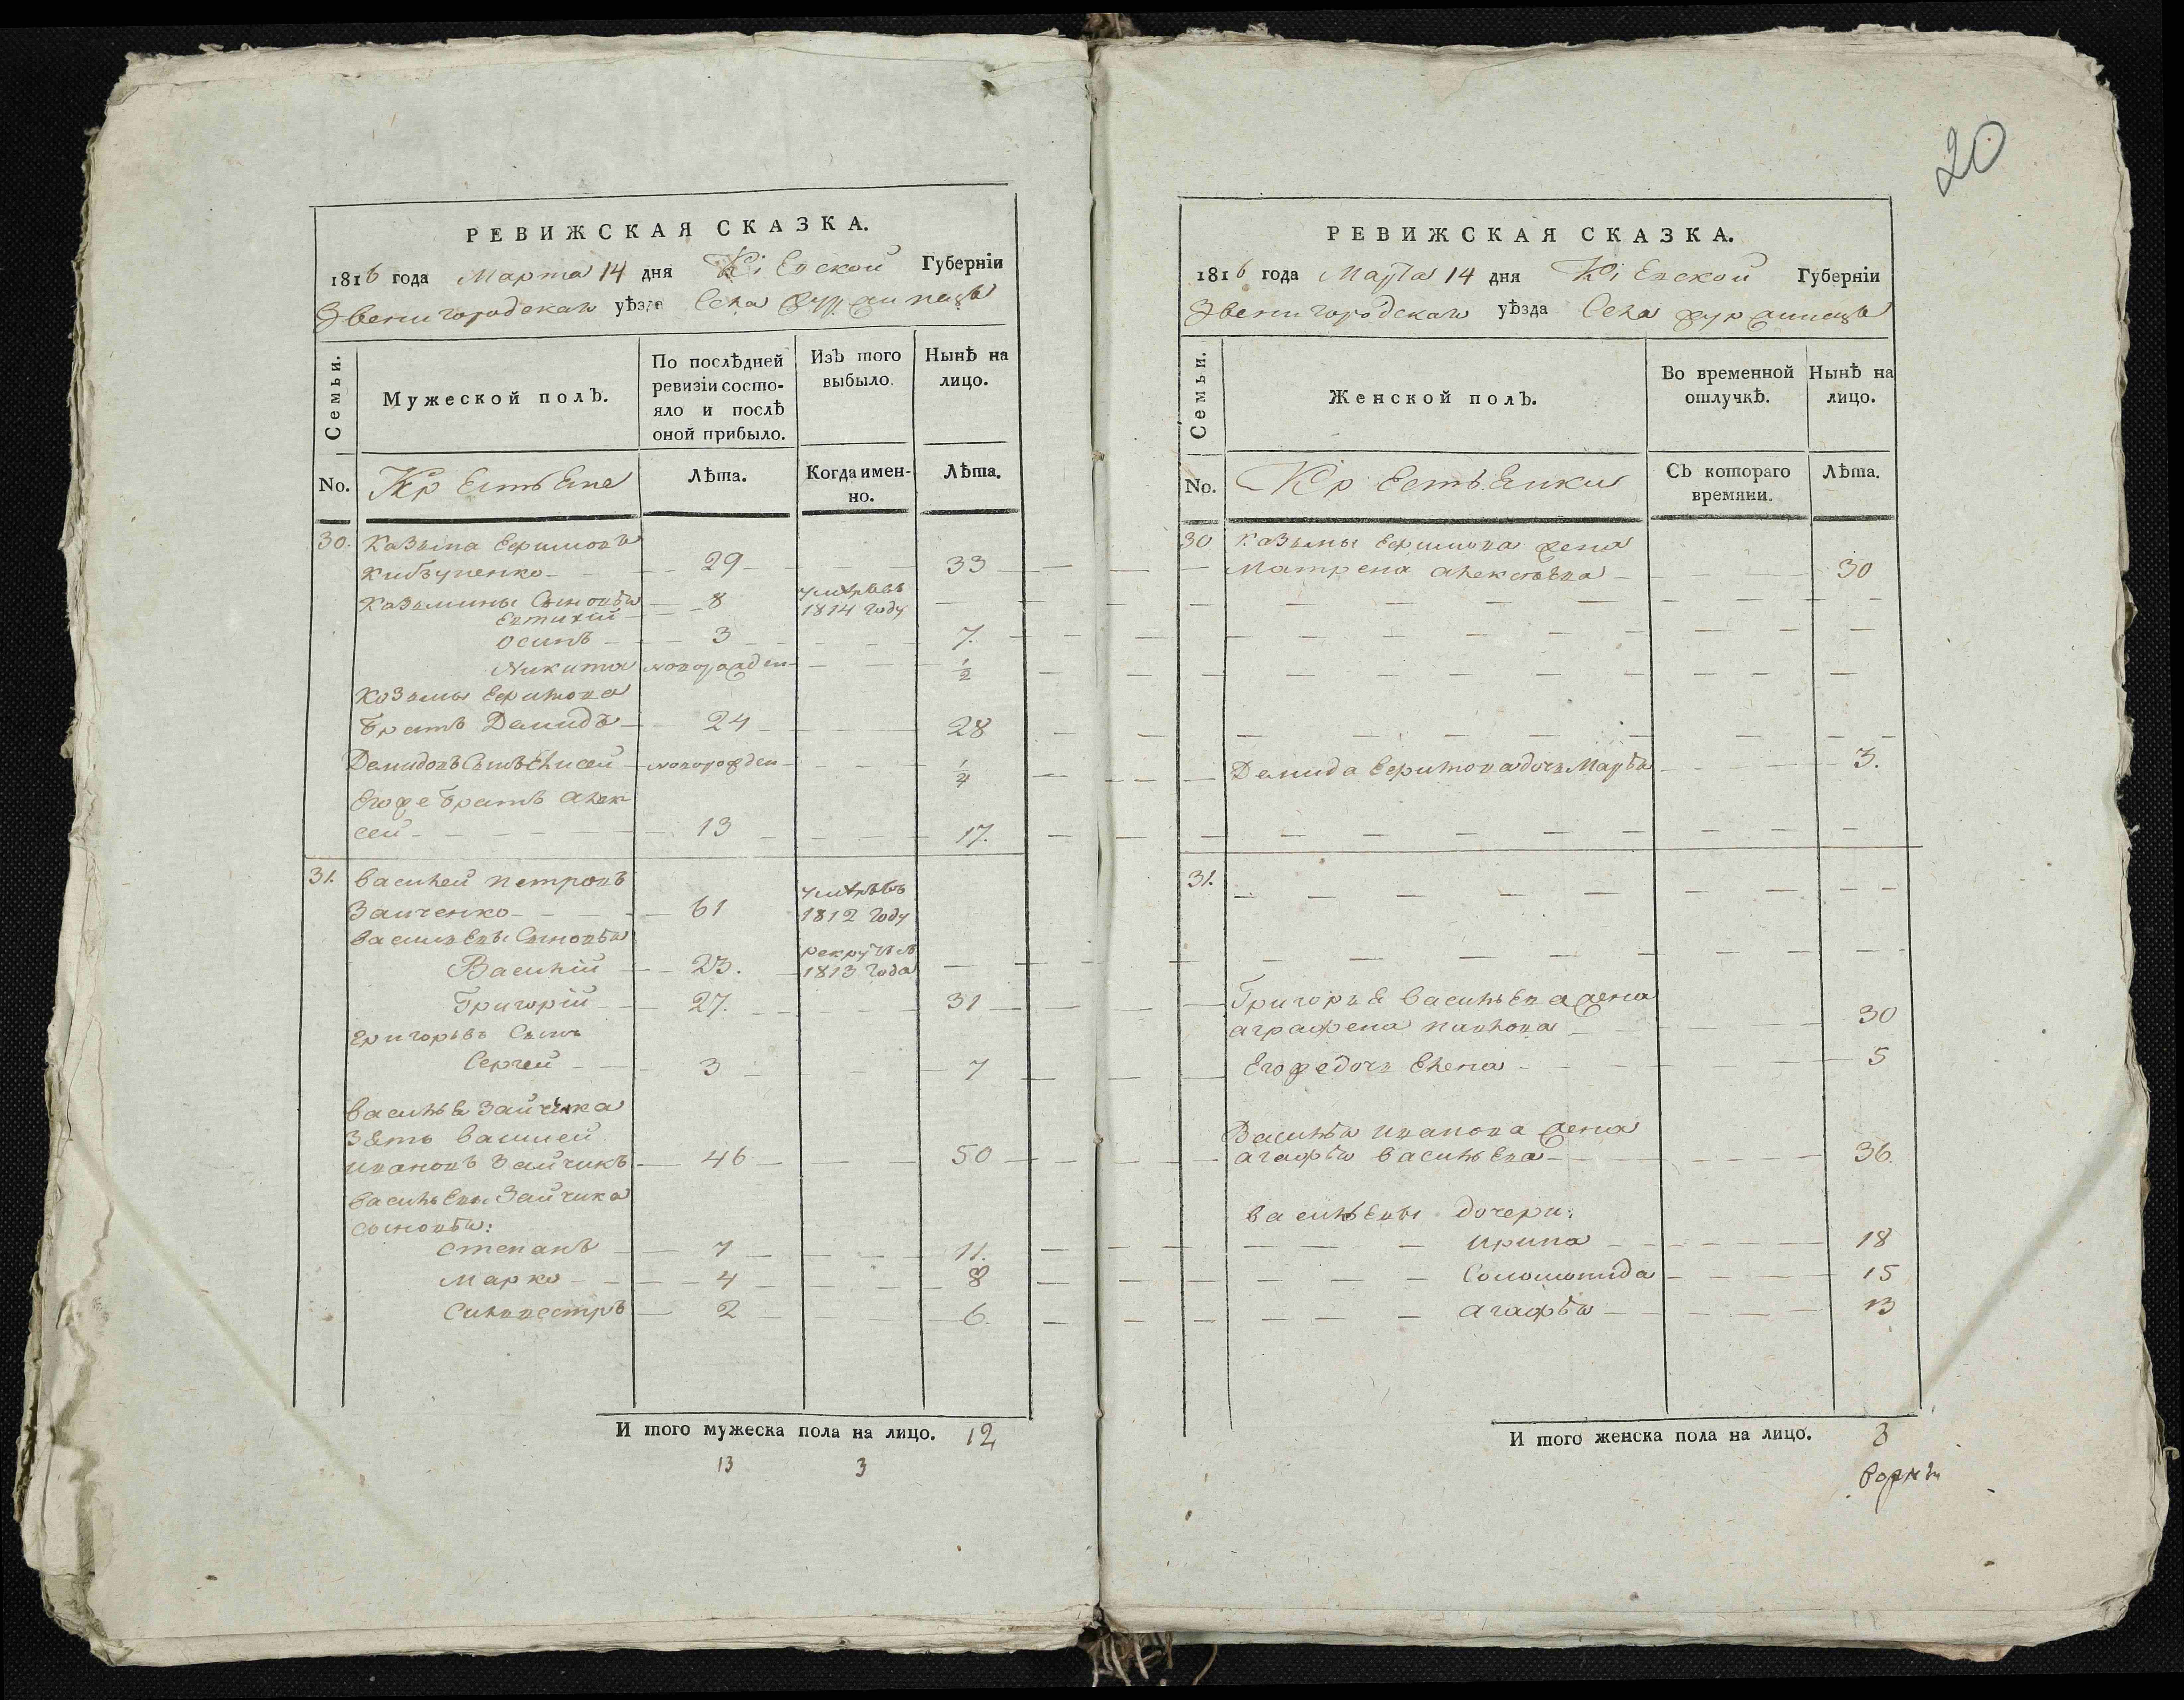 РЕВИЖСКАЯ СКАЗКА.
1816 года Марта 14 дня Кіевской Губерніи
Звенигородскаго уѣзда Села Журжинецъ
Семьи.
Мужеской полъ.
По послѣдней ревизіи состояло и послѣ оной прибыло.
Изъ того выбыло.
Нынѣ на лицо.
No. Крестьяне Лѣта. Когда именно. Лѣта.
30. Казьма Ефимовъ
Кибзуненко 29 33
Казьмины Сыновья 8 умѣръ въ
Евтихій 1814 году
Осипъ 3 7.
Никита новорожден 1/2
Козьмы Ефимова
братъ Демидъ 24 28
Демидовъ Сынъ Елисей новорожден 1/4
Егоже братъ Алек
сей 13 17.
31. Василей Петровъ
Заиченко 61 умѣръ въ 1812 году
Васильевы Сыновья
Василій 23. рекрутъ 1813 года
Григорій 27. 31
Григорьевъ Сынъ
Сергей 3 7
Василья Зайчика
Зять Василей
Ивановъ Зайчикъ 46 50
Васильевы Зайчика
Сыновья:
Степанъ 7 11.
Марко 4 8
Сильвестръ 2 6.
И того мужеска пола на лицо. 12
13 3
20
РЕВИЖСКАЯ СКАЗКА.
1816 года Марта 14 дня Кіевской Губерніи
Звенигородскаго уѣзда Села Журжинецъ
Семьи.
Женской полъ.
Во временной отлучкѣ.
Нынѣ на лицо.
No. Крестьянки Съ котораго времяни. Лѣта.
30 Казьмы Ефимова жена
Матрена Алексѣева 30
Демида Ефимова дочь Марья 3.
31.
Григорья Васильева жена
Аграфена Павлова 30
Егоже дочь Елена 5
Василья Иванова жена
Агафья Васильева 36.
Васильевы дочери:
Ирина 18
Соломонида 15
Агафья 13
И того женска пола на лицо. 8